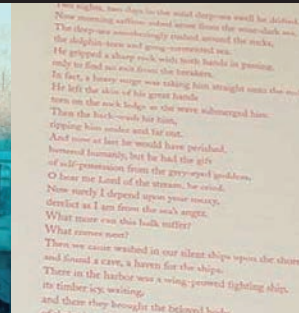 Two nights, two days in the solid deep-sea swell he drifted
Now morning saffron-robed arose from the wine-dark sea.
The deep-sea smotheringly rushed around the rocks,
the dolphin-torn and gong-tormented sea.
He gripped a sharp rock with both hands in passing,
only to find no exit from the breakers.
In fact, a heavy surge was taking him straight onto the
He left the skin of his great hands
torn on the rock ledge as the wave submerged him.
Then the back-wash hit him,
ripping him under and far out.
And now at last he would have perished,
battered humanly, but he had the gift
of self-possession from the grey-eyed goddess,
O hear me Lord of the stream, he cried,
Now surely I depend upon your mercy,
derelict as I am from the sea's anger.
What more can this hulk suffer?
What comes next?
Then we came washed in our silent ships upon the shore
and found a cave, a haven for the ships.
There in the harbor was a wing-prowed fighting ship,
its timber icy, waiting,
and there they brought the beloved